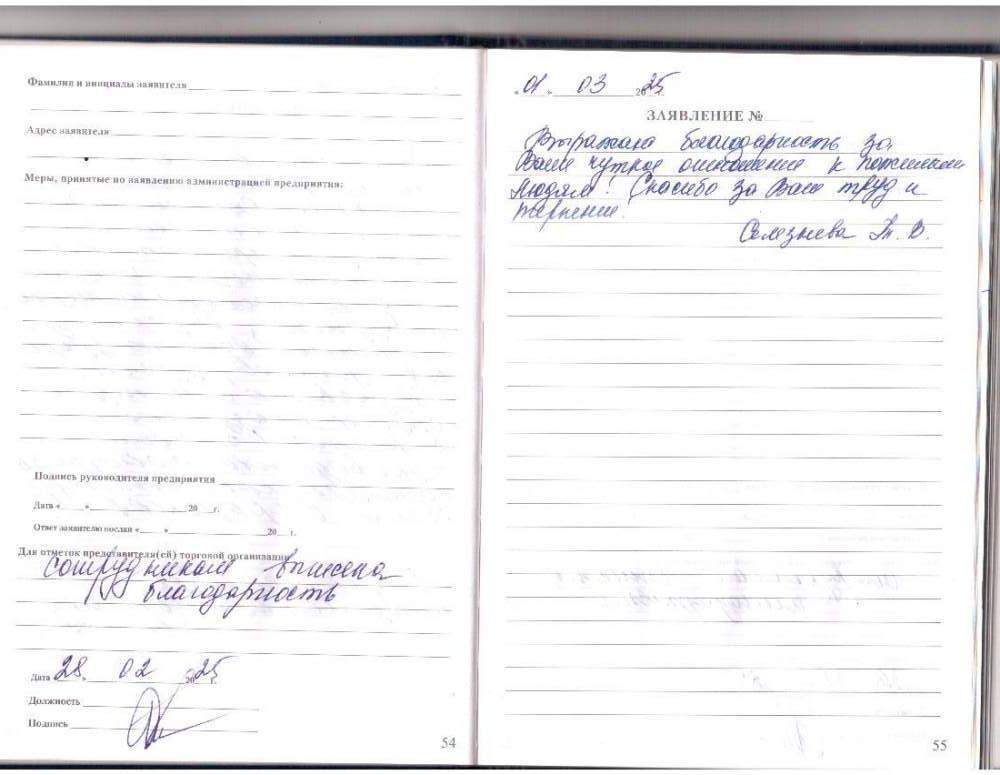 Фамилия и инициалы заявителя
Адрес заявителя
Меры, принятые по заявлению администрацией предприятия:
Подпись руководителя предприятия
Дата « » 20 г.
Ответ заявителю послан « » 20 г.
Для отметок представителя(ей) торговой организации
сотрудникам вынесена
благодарность
Дата 28 » 02 2025 г.
Должность
Подпись
54
« 01 » 03 2025 г.
ЗАЯВЛЕНИЕ №
Выражаю благодарность за
Ваше чуткое отношение к пожилым
людям! Спасибо за Ваш труд и
терпение.
Селезнева Т. В.
55